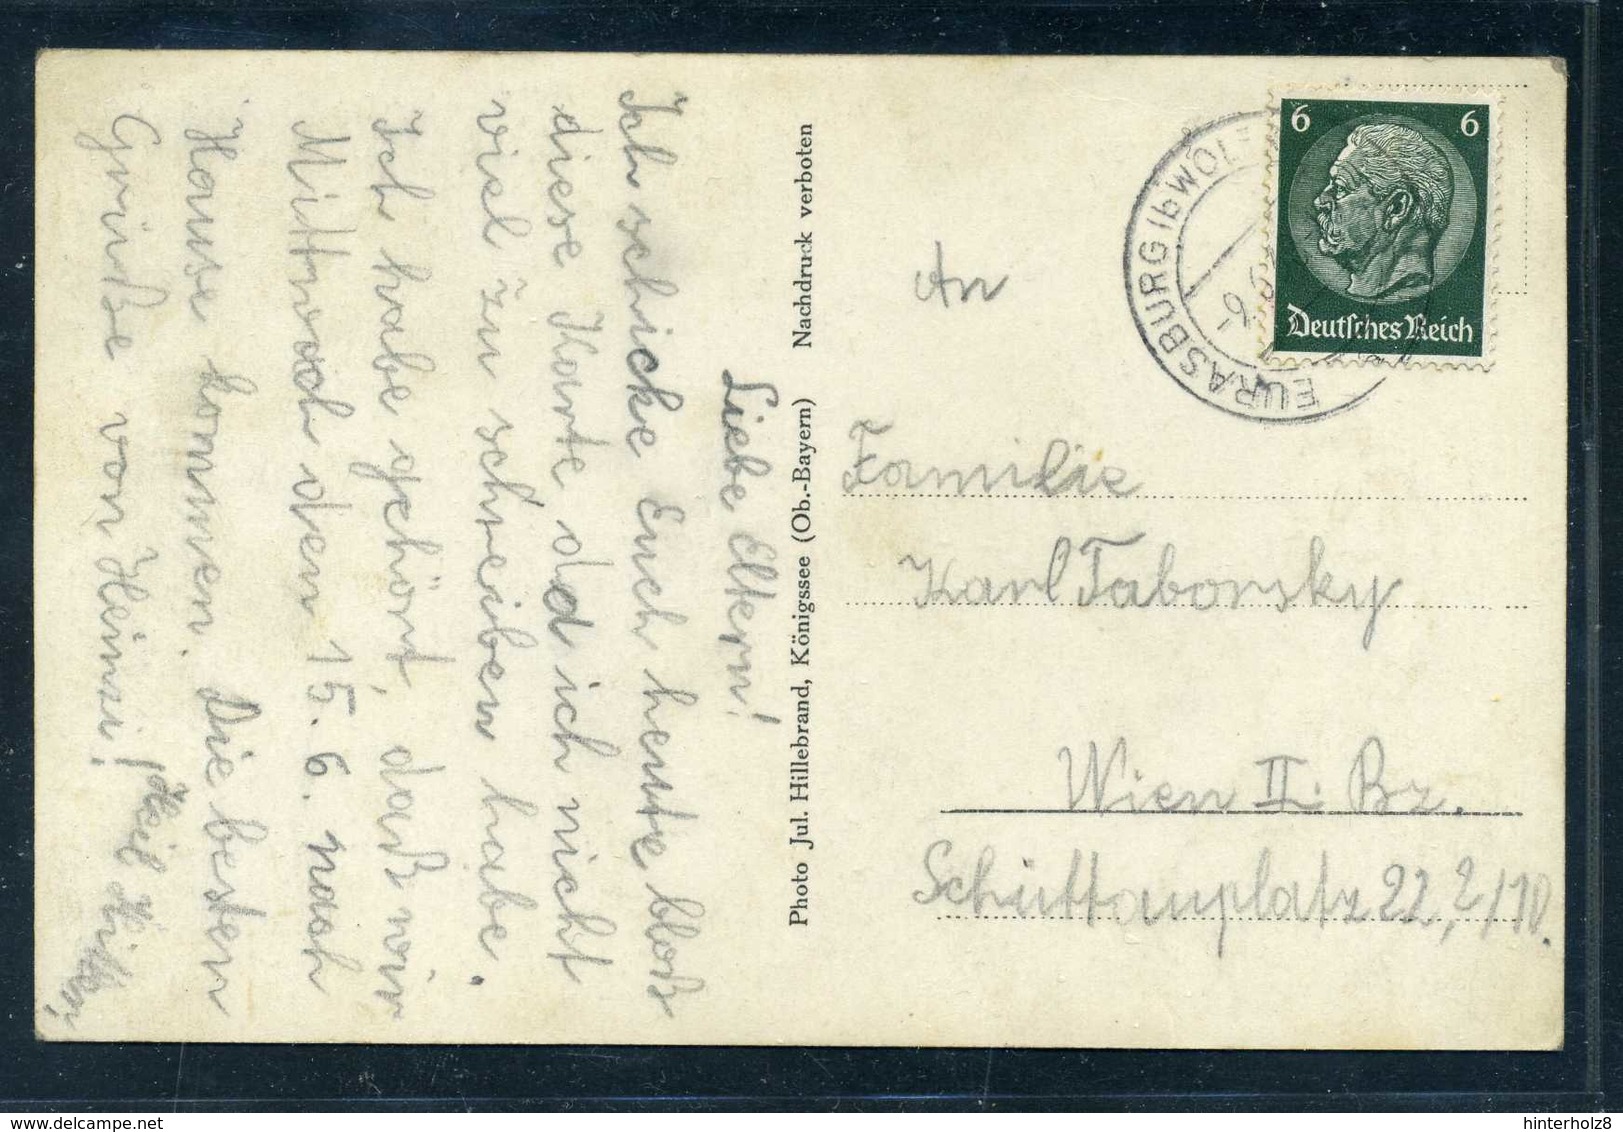 Liebe Eltern!
Ich schicke Euch heute bloß
diese Karte, da ich nicht
viel zu schreiben habe.
Ich habe gehört, daß wir
Mittwoch den 15. 6. nach
Hause kommen. Die besten
Grüße von Heinzi!
Heil Hitler
Photo Jul. Hillebrand, Königssee (Ob.-Bayern) Nachdruck verboten
EURASBURG (b WOLF
6 6
Deutsches Reich
An
Familie
Karl Taborsky
Wien II. Bz.
Schüttauplatz 22, 2/10.
delcampe.net
hinterholz8